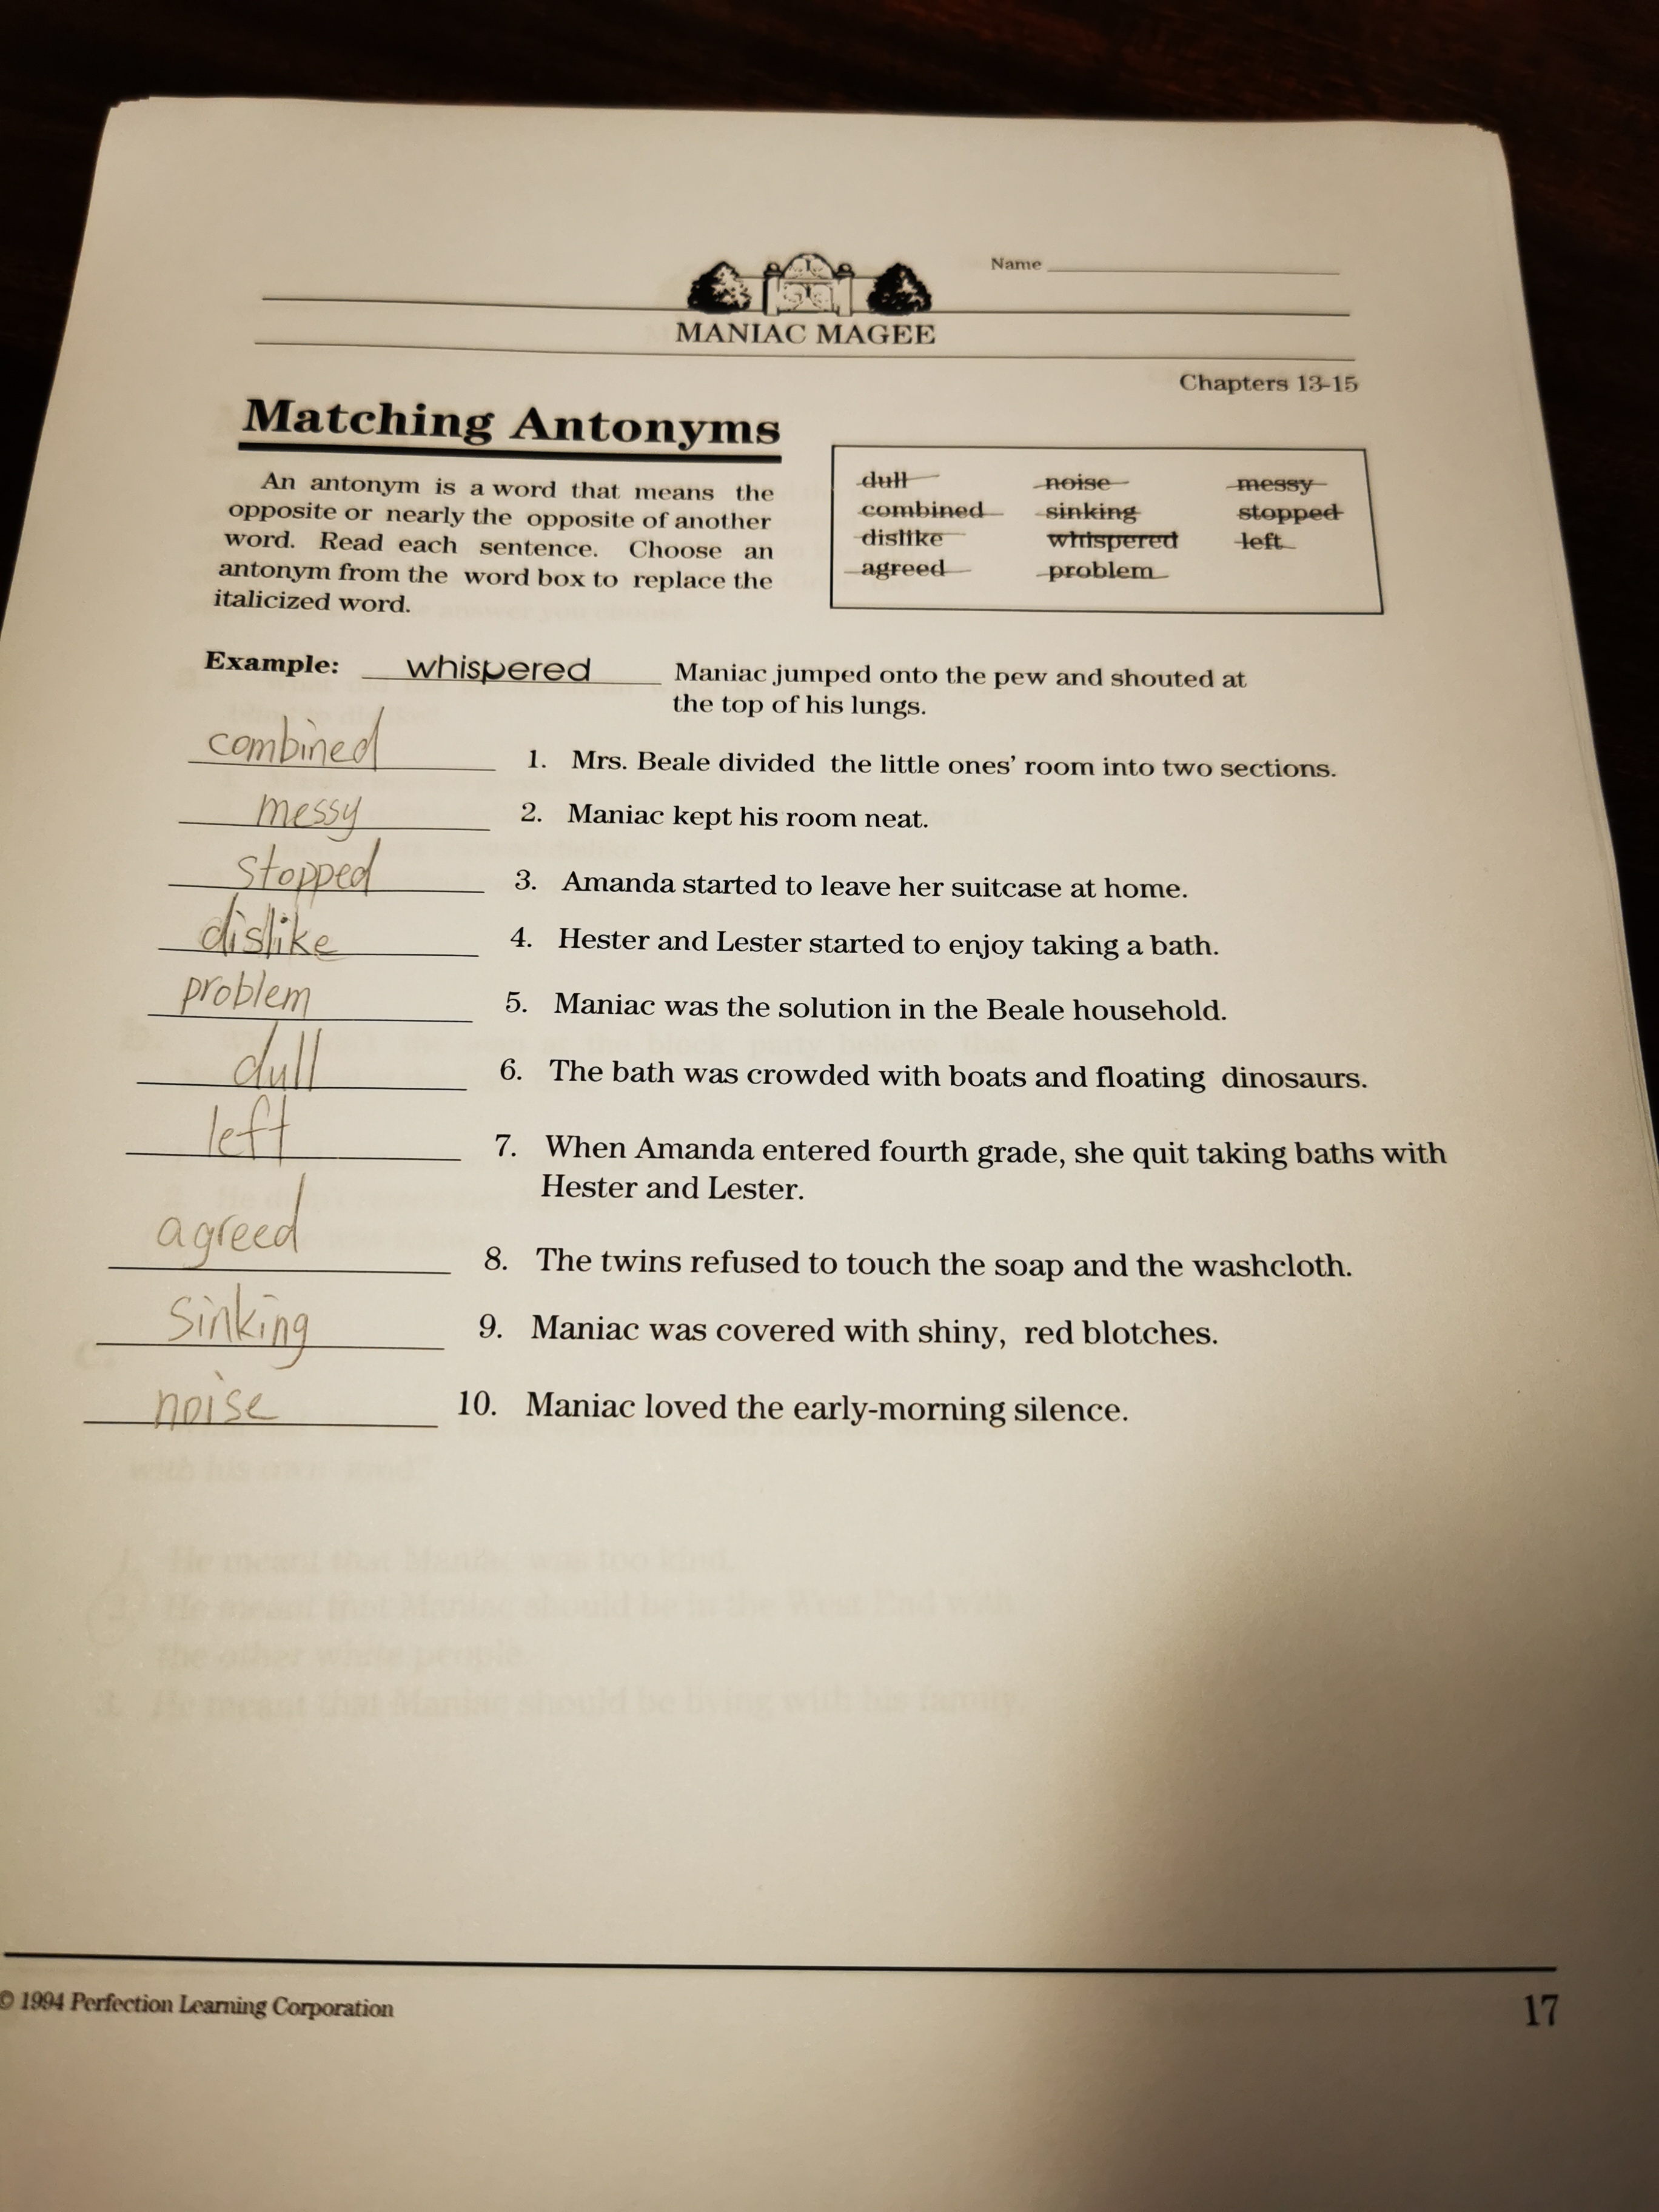 Name
MANIAC MAGEE
Chapters 13-15
Matching Antonyms
An antonym is a word that means the
opposite or nearly the opposite of another
word. Read each sentence. Choose an
antonym from the word box to replace the
italicized word.
dull noise messy
combined sinking stopped
dislike whispered left
agreed problem
Example: whispered Maniac jumped onto the pew and shouted at
the top of his lungs.
combined 1. Mrs. Beale divided the little ones' room into two sections.
messy 2. Maniac kept his room neat.
stopped 3. Amanda started to leave her suitcase at home.
dislike 4. Hester and Lester started to enjoy taking a bath.
problem 5. Maniac was the solution in the Beale household.
dull 6. The bath was crowded with boats and floating dinosaurs.
left 7. When Amanda entered fourth grade, she quit taking baths with
Hester and Lester.
agreed 8. The twins refused to touch the soap and the washcloth.
sinking 9. Maniac was covered with shiny, red blotches.
noise 10. Maniac loved the early-morning silence.
with his own kind
1. He meant that Maniac was too kind.
2. He meant that Maniac should be in the West End with
the other white people.
3. He meant that Maniac should be living with his family.
© 1994 Perfection Learning Corporation
17